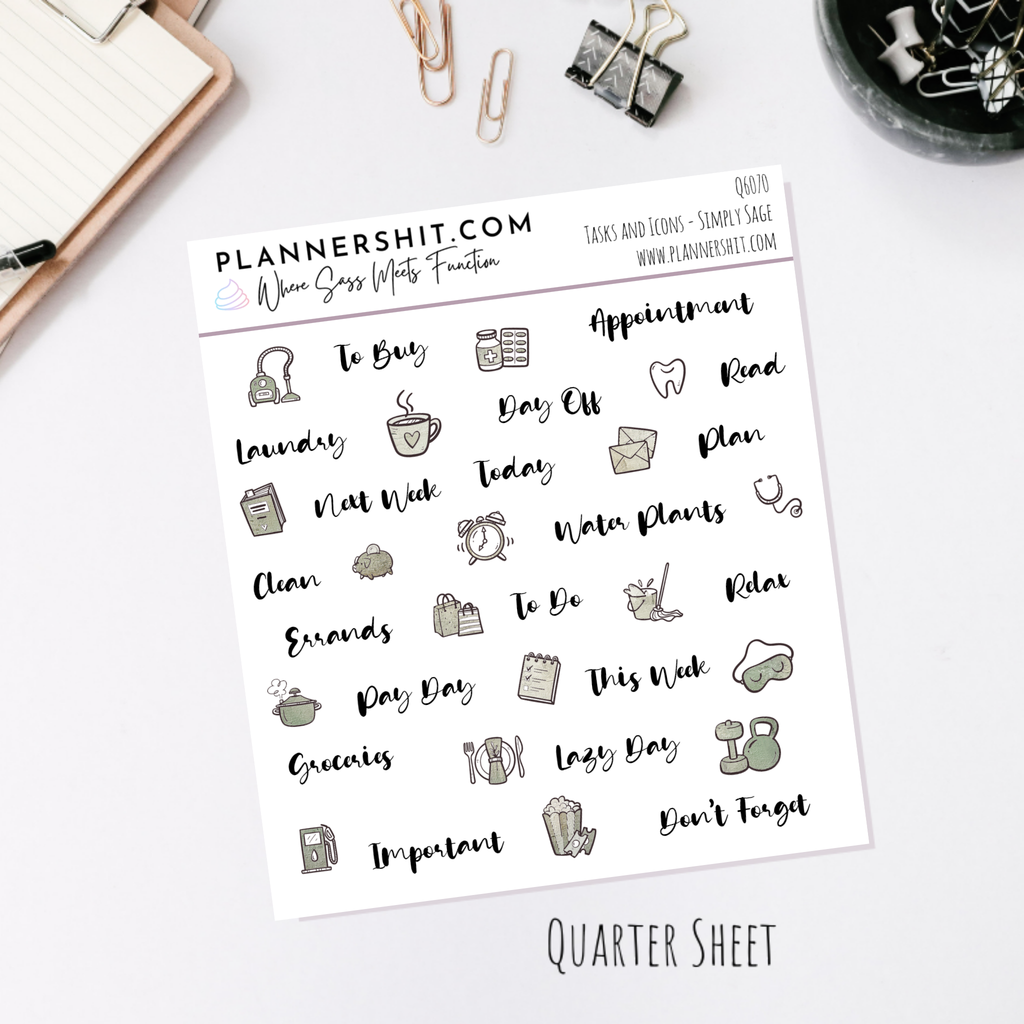 PLANNERSHIT.COM
Where Sass Meets Function
Q6070
Tasks and Icons - Simply Sage
www.plannershit.com
To Buy
Appointment
Read
Day Off
Laundry
Plan
Today
Next Week
Water Plants
Clean
Relax
To Do
Errands
This Week
Pay Day
Lazy Day
Groceries
Don't Forget
Important
Quarter Sheet